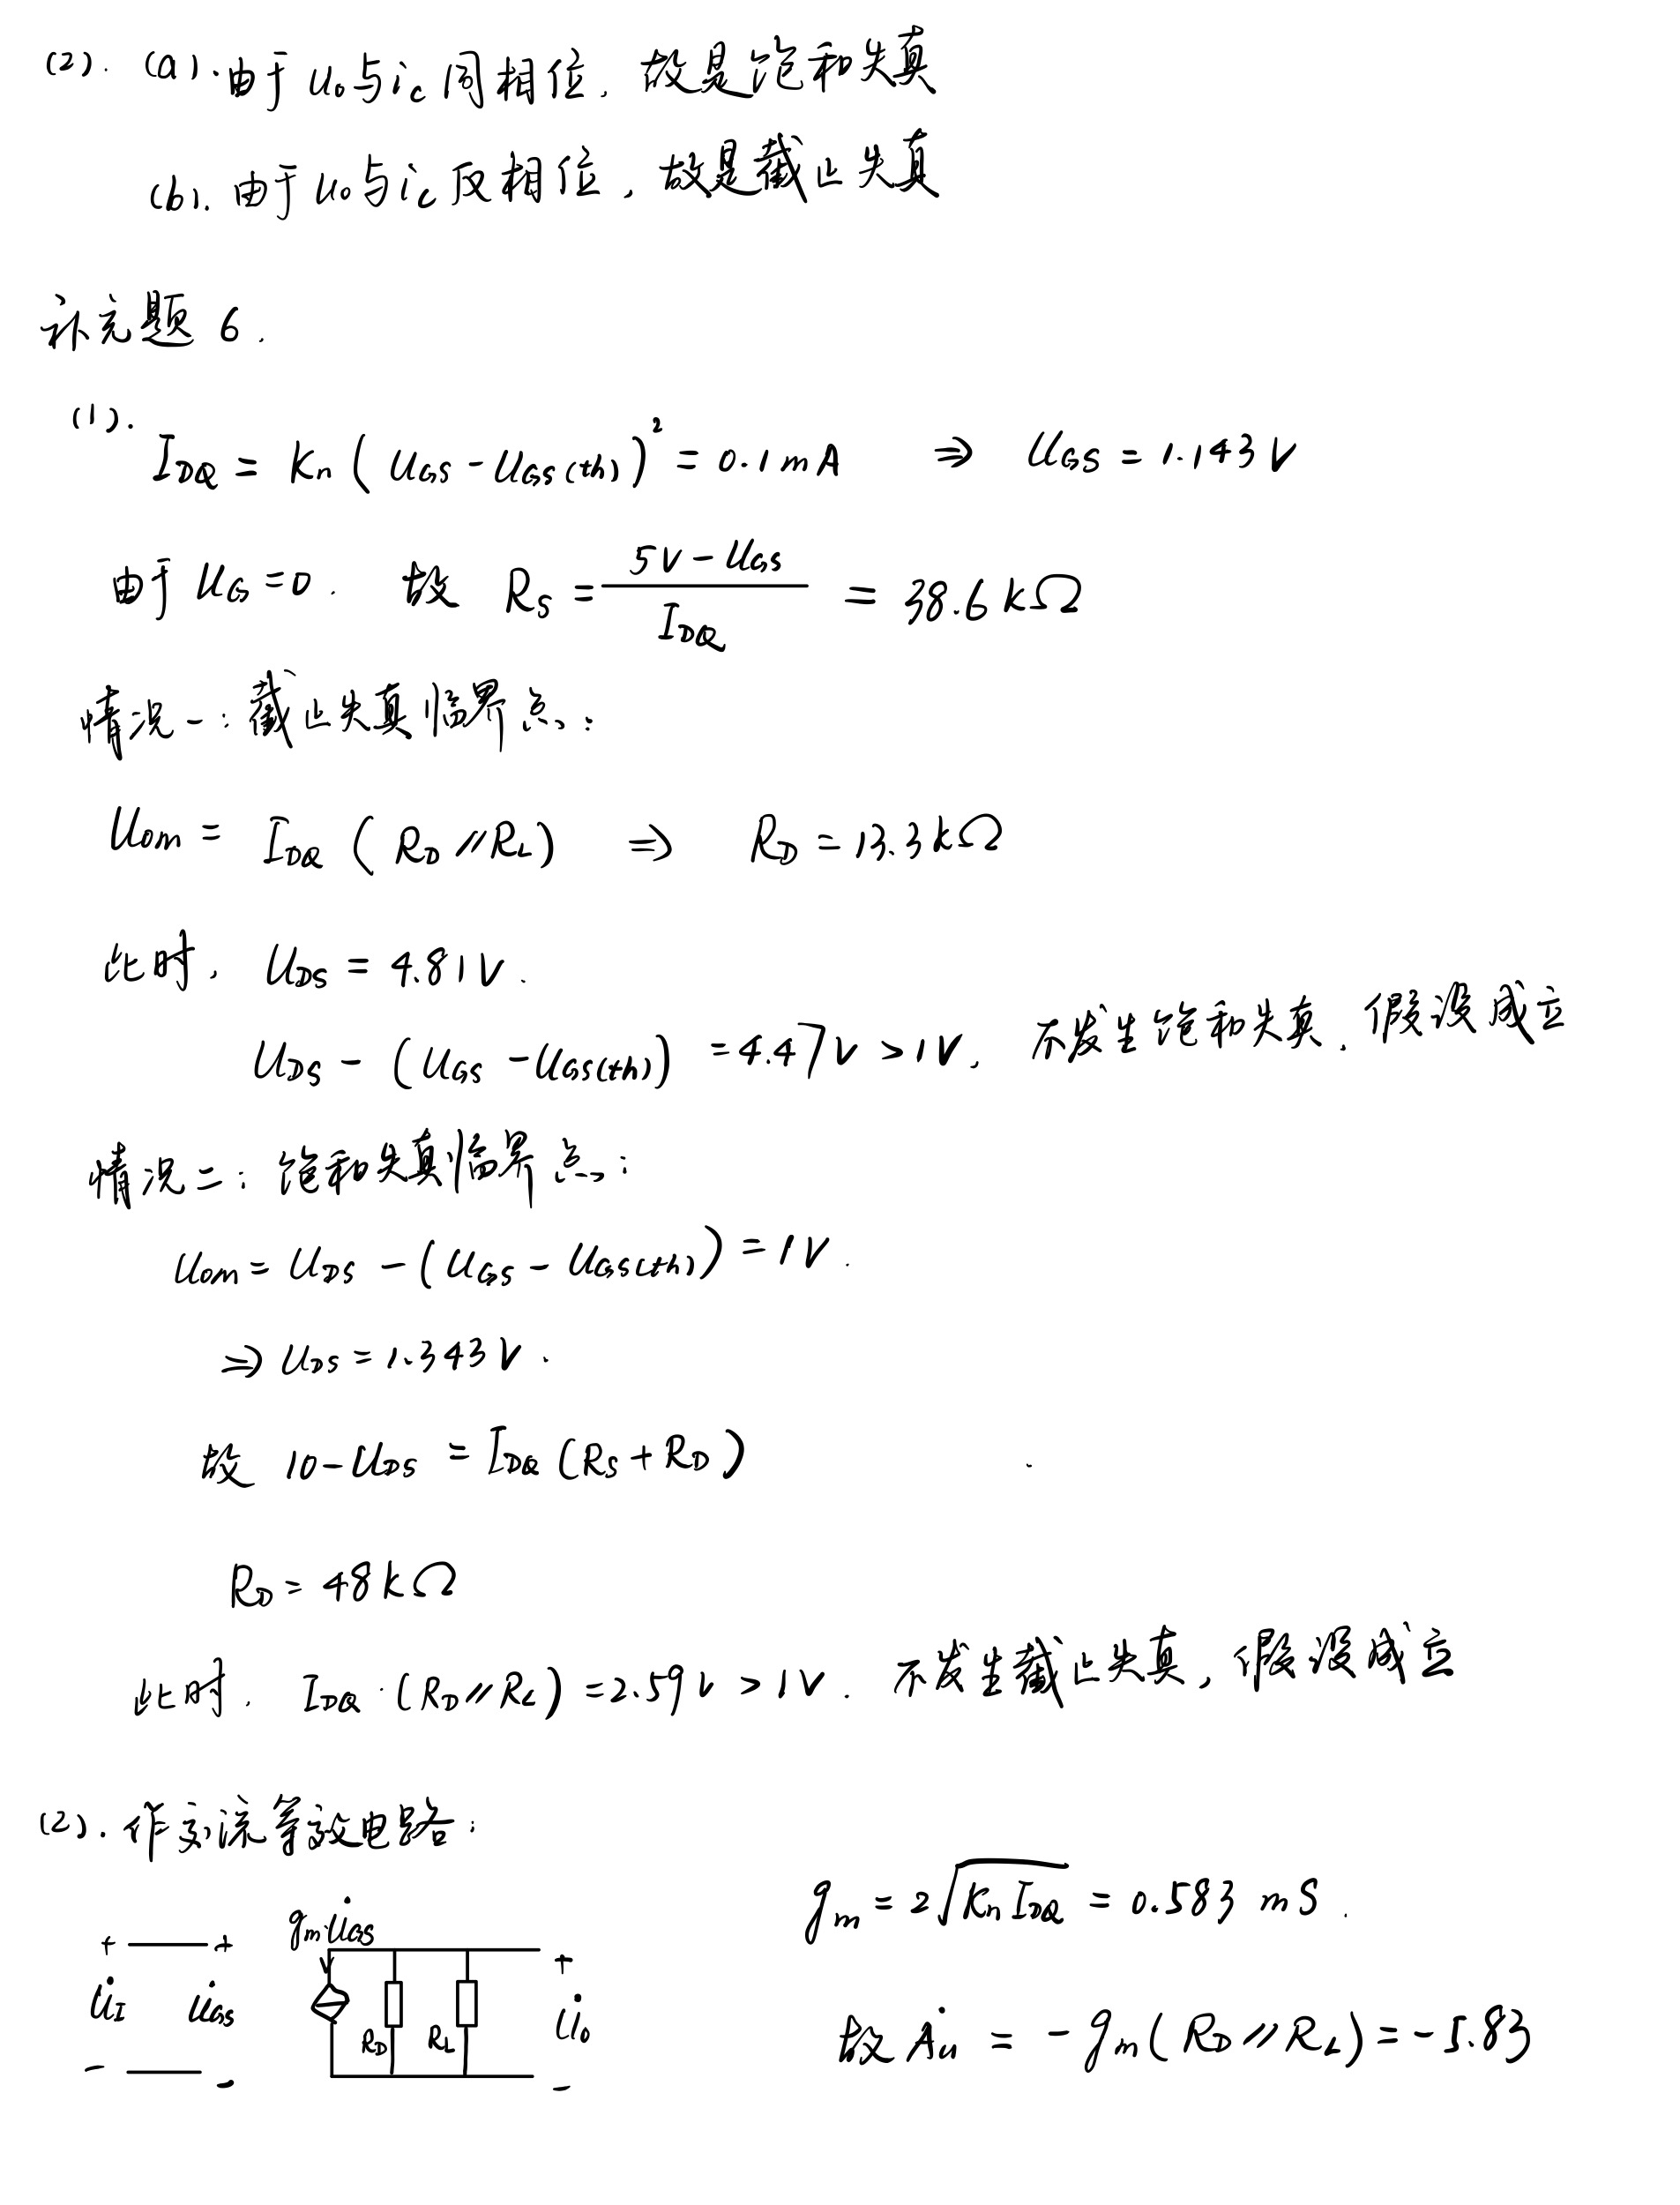 (2). (a).由于 u₀与i_c 同相位, 故是饱和失真
(b). 由于 u₀与i_c 反相位, 故是截止失真
补充题 6.
(1).
I_DQ = K_n ( U_GS - U_GS(th) )² = 0.1 mA ⇒ U_GS = 1.143 V
由于 U_G = 0. 故 R_S = (5V - U_GS) / I_DQ = 38.6 kΩ
情况一: 截止失真临界点:
U_om = I_DQ ( R_D // R_L ) ⇒ R_D = 13.3 kΩ
此时, U_DS = 4.81 V.
U_DS - ( U_GS - U_GS(th) ) = 4.47 V > 1 V, 不发生饱和失真, 假设成立
情况二: 饱和失真临界点:
U_om = U_DS - ( U_GS - U_GS(th) ) = 1 V.
⇒ U_DS = 1.343 V.
故 10 - U_DS = I_DQ ( R_S + R_D )
R_D = 48 kΩ
此时, I_DQ · ( R_D // R_L ) = 2.59 V > 1 V. 不发生截止失真, 假设成立
(2). 作交流等效电路:
g_m = 2√(K_n I_DQ) = 0.583 mS.
g_m U̇_GS
+ + +
U̇_I U̇_GS R_D R_L U̇_o
- - -
故 Ȧ_u = - g_m ( R_D // R_L ) = - 5.83